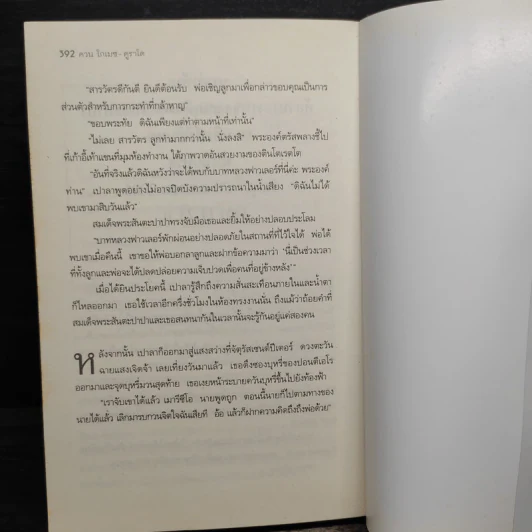 392 ควน โกเมซ-คูราโด
"สารวัตรดีกันตี ยินดีต้อนรับ พ่อเชิญลูกมาเพื่อกล่าวขอบคุณเป็นการ
ส่วนตัวสำหรับการกระทำที่กล้าหาญ"
"ขอบพระทัย ดิฉันเพียงแต่ทำตามหน้าที่เท่านั้น"
"ไม่เลย สารวัตร ลูกทำมากกว่านั้น นั่งลงสิ" พระองค์ตรัสพลางชี้ไป
ที่เก้าอี้เท้าแขนที่มุมห้องทำงาน ใต้ภาพวาดอันสวยงามของตินโตเรตโต
"อันที่จริงแล้วดิฉันหวังว่าจะได้พบกับบาทหลวงฟาวเลอร์ที่นี่ค่ะ พระองค์
ท่าน" เปาลาพูดอย่างไม่อาจปิดบังความปรารถนาในน้ำเสียง "ดิฉันไม่ได้
พบเขามาสิบวันแล้ว"
สมเด็จพระสันตะปาปาทรงจับมือเธอและยิ้มให้อย่างปลอบประโลม
"บาทหลวงฟาวเลอร์พักผ่อนอย่างปลอดภัยในสถานที่ที่ไว้ใจได้ พ่อได้
พบเขาเมื่อคืนนี้ เขาขอให้พ่อบอกลาลูกและฝากข้อความมาว่า 'นี่เป็นช่วงเวลา
ที่ทั้งลูกและพ่อจะได้ปลดปล่อยความเจ็บปวดเพื่อคนที่อยู่ข้างหลัง'"
เมื่อได้ยินประโยคนี้ เปาลารู้สึกถึงความสั่นสะเทือนภายในและน้ำตา
ก็ไหลออกมา เธอใช้เวลาอีกครึ่งชั่วโมงในห้องทรงงานนั้น ถึงแม้ว่าถ้อยคำที่
สมเด็จพระสันตะปาปาและเธอสนทนากันในเวลานั้นจะรู้กันอยู่แค่สองคน
หลังจากนั้น เปาลาก็ออกมาสู่แสงสว่างที่จัตุรัสเซนต์ปีเตอร์ ดวงตะวัน
ฉายแสงเจิดจ้า เลยเที่ยงวันมาแล้ว เธอดึงซองบุหรี่ของปอนติเอโร
ออกมาและจุดบุหรี่มวนสุดท้าย เธอเงยหน้าระบายควันบุหรี่ขึ้นไปยังท้องฟ้า
"เราจับเขาได้แล้ว เมารีซีโอ นายพูดถูก ตอนนี้นายก็ไปตามทางของ
นายได้แล้ว เลิกมารบกวนจิตใจฉันเสียที อ้อ แล้วก็ฝากความคิดถึงถึงพ่อด้วย"